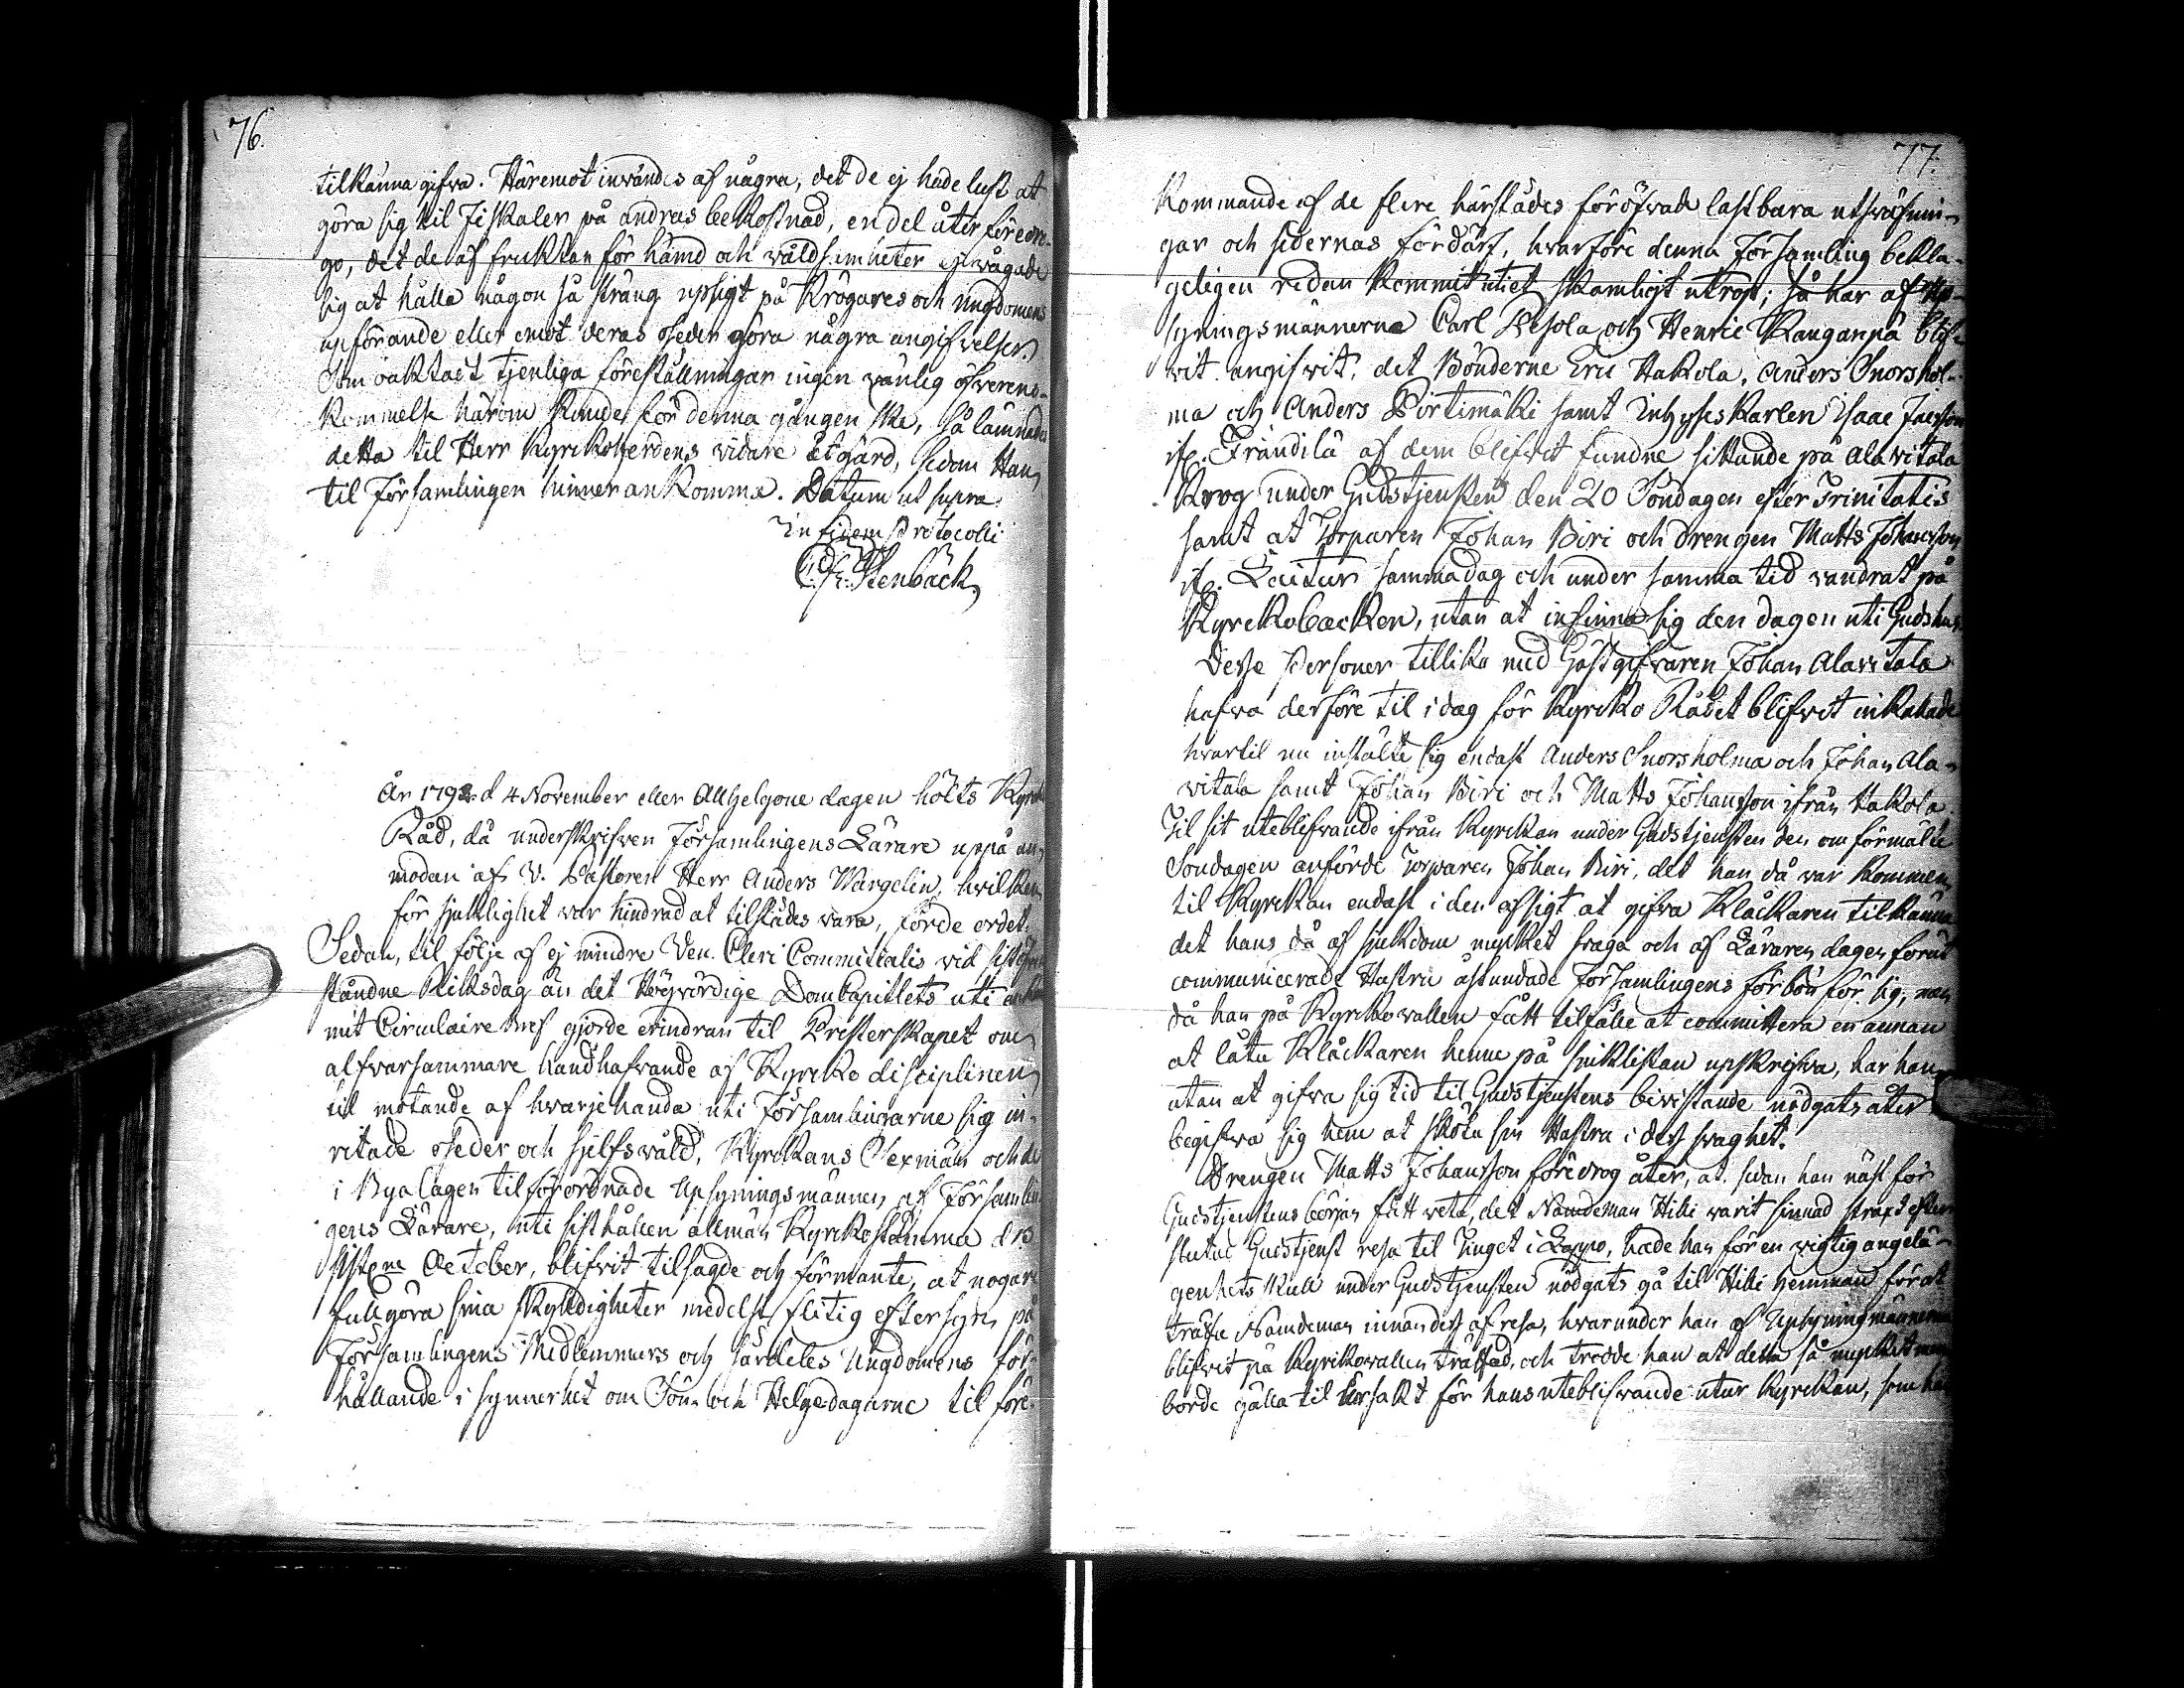 76.
tilkänna gifva. Häremot invändes af några, det de ej hade lust at
göra sig til Fiskaler på andras bekostnad, en del åter föredro-
go, det de af fruktan för hämd och våldsamheter ej vågade
sig at hålla någon så sträng upsigt på Krögares och ungdomens
upförande eller emot deras oseder göra några angifvelser.
Som oaktadt tjenliga föreställningar ingen vänlig öfverens-
kommelse härom kunde för denna gången ske, så lämnades
detta til Herr Kyrkoherdens vidare åtgärd, sedan Han
til Församlingen hinner ankomma. Datum ut supra
In fidem Protocolli
C. Fr. Stenbäck
År 1792. d 4 November eller Allhelgone dagen hölts Kyrko
Råd, då underskrifven Församlingens Lärare uppå an-
modan af V. Pastoren Herr Anders Wargelin, hvilken
för sjuklighet var hindrad at tilstädes vara, förde ordet.
Sedan, til följe af ej mindre Ven. Cleri Commitialis vid sist
ståndne Riksdag än det Högvördige DomCapitlets uti
mit Circulaire bref gjorde erindran til Presterskapet om
alfvarsammare handhafvande af Kyrko disciplinen
til mötande af hvarjehanda uti Församlingarne sig in-
ritade oseder och sjelfsvåld, Kyrkans Sexmän och de
i Byalagen tilförordnade Upsyningsmännen af Församlin
gens Lärare, uti sist hållen allmän Kyrkostämma d 13
sistlne October, blifvit tilsagde och förmante, at nogare
fullgöra sina skyldigheter medelst flitig eftersyn på
Församlingens Medlemmars och särdeles Ungdomens för-
hållande i synnerhet om Sön- och Helgedagarne til före-
77.
kommande af de flere härstädes föröfvade lastbara utsväfnin-
gar och sedernas förderf, hvarföre denna Församling bekla-
geligen redan kommit uti et skamligt utrop; så har af Up-
syningsmännerne Carl Pesola och Henric Kanganpä blif-
vit angifvit, det Bönderne Eric Hakola, Anders Snorshol-
ma och Anders Pirtimäki samt Inhyses Karlen Isaac Isacsson
ifr. Frändilä af dem blifvit fundne sittande på Alavitala
Krog under Gudstjensten den 20 Söndagen efter Trinitatis
samt at Torparen Johan Biri och Drengen Matts Johansson
ifr. samma dag och under samma tid vandrat på
Kyrkobacken, utan at infinna sig den dagen uti Gudshus
Desse Personer tillika med Gästgifvaren Johan Alavitala
hafva derföre til i dag för Kyrko Rådet blifvit inkallade
hvartil nu instälte sig endast Anders Snorsholma och Johan Ala-
vitala samt Johan Biri och Matts Johansson ifrån Hakola.
Til sit uteblifvande ifrån Kyrkan under Gudstjensten den omförmälte
Söndagen anförde Torparen Johan Biri, det han då var kommen
til Kyrkan endast i den afsigt at gifva Klåckaren tilkänna
det hans då af sjukdom mycket svaga och af Läraren dagen förut
communicerade Hustru åstundade Församlingens förbön för sig, men
då han på Kyrkovallen fått tilfälle at committera en annan
at låta Klåckaren henne på sjuklistan upskrifva, har han
utan at gifva sig tid til Gudstjenstens bivistande nödgats åter
begifva sig hem at sköta sin Hustru i des svaghet.
Drengen Matts Johansson föredrog åter, at sedan han näst för
Gudstjenstens början fått veta, det Nämdeman Hilli varit sinnad straxt efter
slutad Gudstjenst resa til Tinget i Lappo, hade han för en vigtig angelä-
genhets skull under Gudstjensten nödgats gå til Hilli hemman för at
träffa Nämdeman innan dess afresa, hvarunder han af Upsyningsmännerne
blifvit på Kyrkovallen träffad, och trodde han at detta så mycket
borde gälla til ursäkt för hans uteblifvande utur Kyrkan, som han